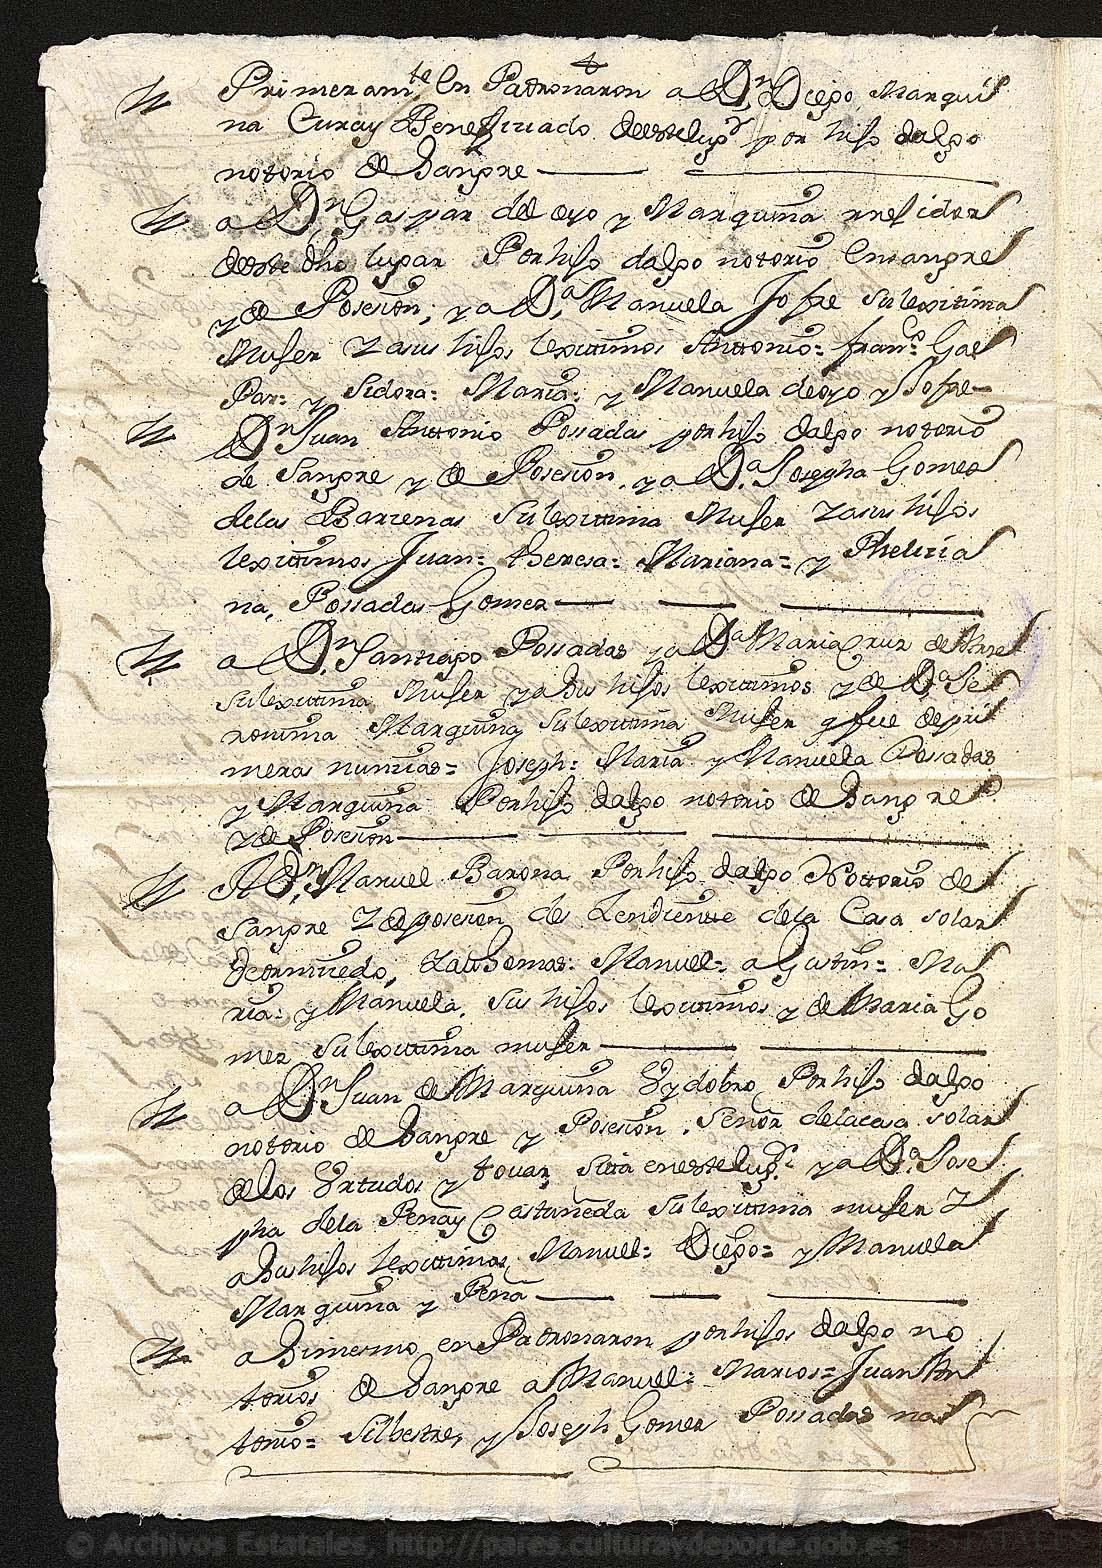 Primeramte En Patronaron a Dn Diego Marqui
na Cura y Beneficiado deeste lugr por hijo dalgo
notorio de Sangre
a Dn Gaspar de oyo y Marquina rrexidor
deeste dho lugar Por hijo dalgo notorio En sangre
y de Posecion, y a Da Manuela Jofre su lexitima
Muger y a sus hijos lexitimos Anttonio= franco Gas
Par= y Sidora= Maria= y Manuela de oyo y Jofre
Dn Juan Anttonio Possadas por hijo dalgo notorio
de Sangre y de Posecion, y a Da Josepha Gomes
delas Barcenas su lexittima Muger y a sus hijos
lexittimos Juan= theresa= Mariana= y Phelizia
na, Possadas Gomez
a Dn Santiago Possadas y a Da Maria Cruz de
su lexittima Muger y a sus hijos lexitimos y de Da Je
ronima Marquina su lexittima Muger q fue de pri
meras numcias= Joseph= Maria y Manuela Posadas
y Marquina Por hijo dalgo notorio de Sangre
y de Posecion
A Dn Manuel Barona Por hijo dalgo Nottorio de
Sangre y de posecion deszendientte dela Casa solar
de ormiuedo, thomas= Manuel= aGustin= Ma
ria= y Manuela, sus hijos lexitimos y de Maria Go
mez su lexittima muger
a Dn Juan de Marquina Por hijo dalgo
notorio de Sangre y Posecion, Señor de la casa solar
delos y touar, sita en este lugr y a Da Jose
pha dela Pena y Castañeda su lexittima muger y
a Sus hijos lexittimos Manuel= Diego= y Manuela
Marquina y Pena
a Simesmo en Patronaron por hijos dalgo no
torios de Sangre a Manuel= Marcos= Juan An
tonio= Silbestre, y Joseph Gomez Possadas
© Archivos Estatales, http://pares.culturaydeporte.gob.es